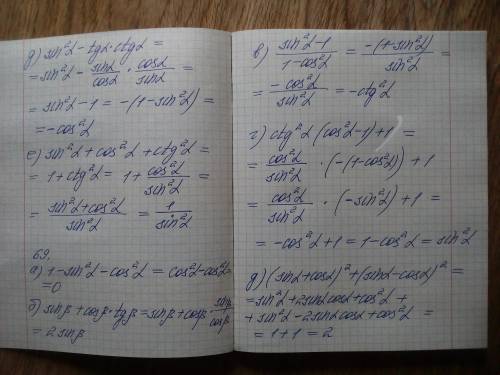 д) sin²α - tgα·ctgα =
= sin²α - sinα/cosα · cosα/sinα =
= sin²α - 1 = -(1-sin²α) =
= -cos²α
е) sin²α + cos²α + ctg²α =
= 1 + ctg²α = 1 + cos²α/sin²α =
= (sin²α + cos²α)/sin²α = 1/sin²α
69.
а) 1 - sin²α - cos²α = cos²α - cos²α =
= 0
б) sinβ + cosβ·tgβ = sinβ + cosβ· sinβ/cosβ =
= 2 sinβ
в) (sin²α - 1)/(1 - cos²α) = -(1 - sin²α)/sin²α =
= -cos²α/sin²α = -ctg²α
г) ctg²α (cos²α - 1) + 1 =
= cos²α/sin²α · (-(1 - cos²α)) + 1
= cos²α/sin²α · (-sin²α) + 1 =
= -cos²α + 1 = 1 - cos²α = sin²α
д) (sinα + cosα)² + (sinα - cosα)² =
= sin²α + 2sinα cosα + cos²α +
+ sin²α - 2sinα cosα + cos²α =
= 1 + 1 = 2